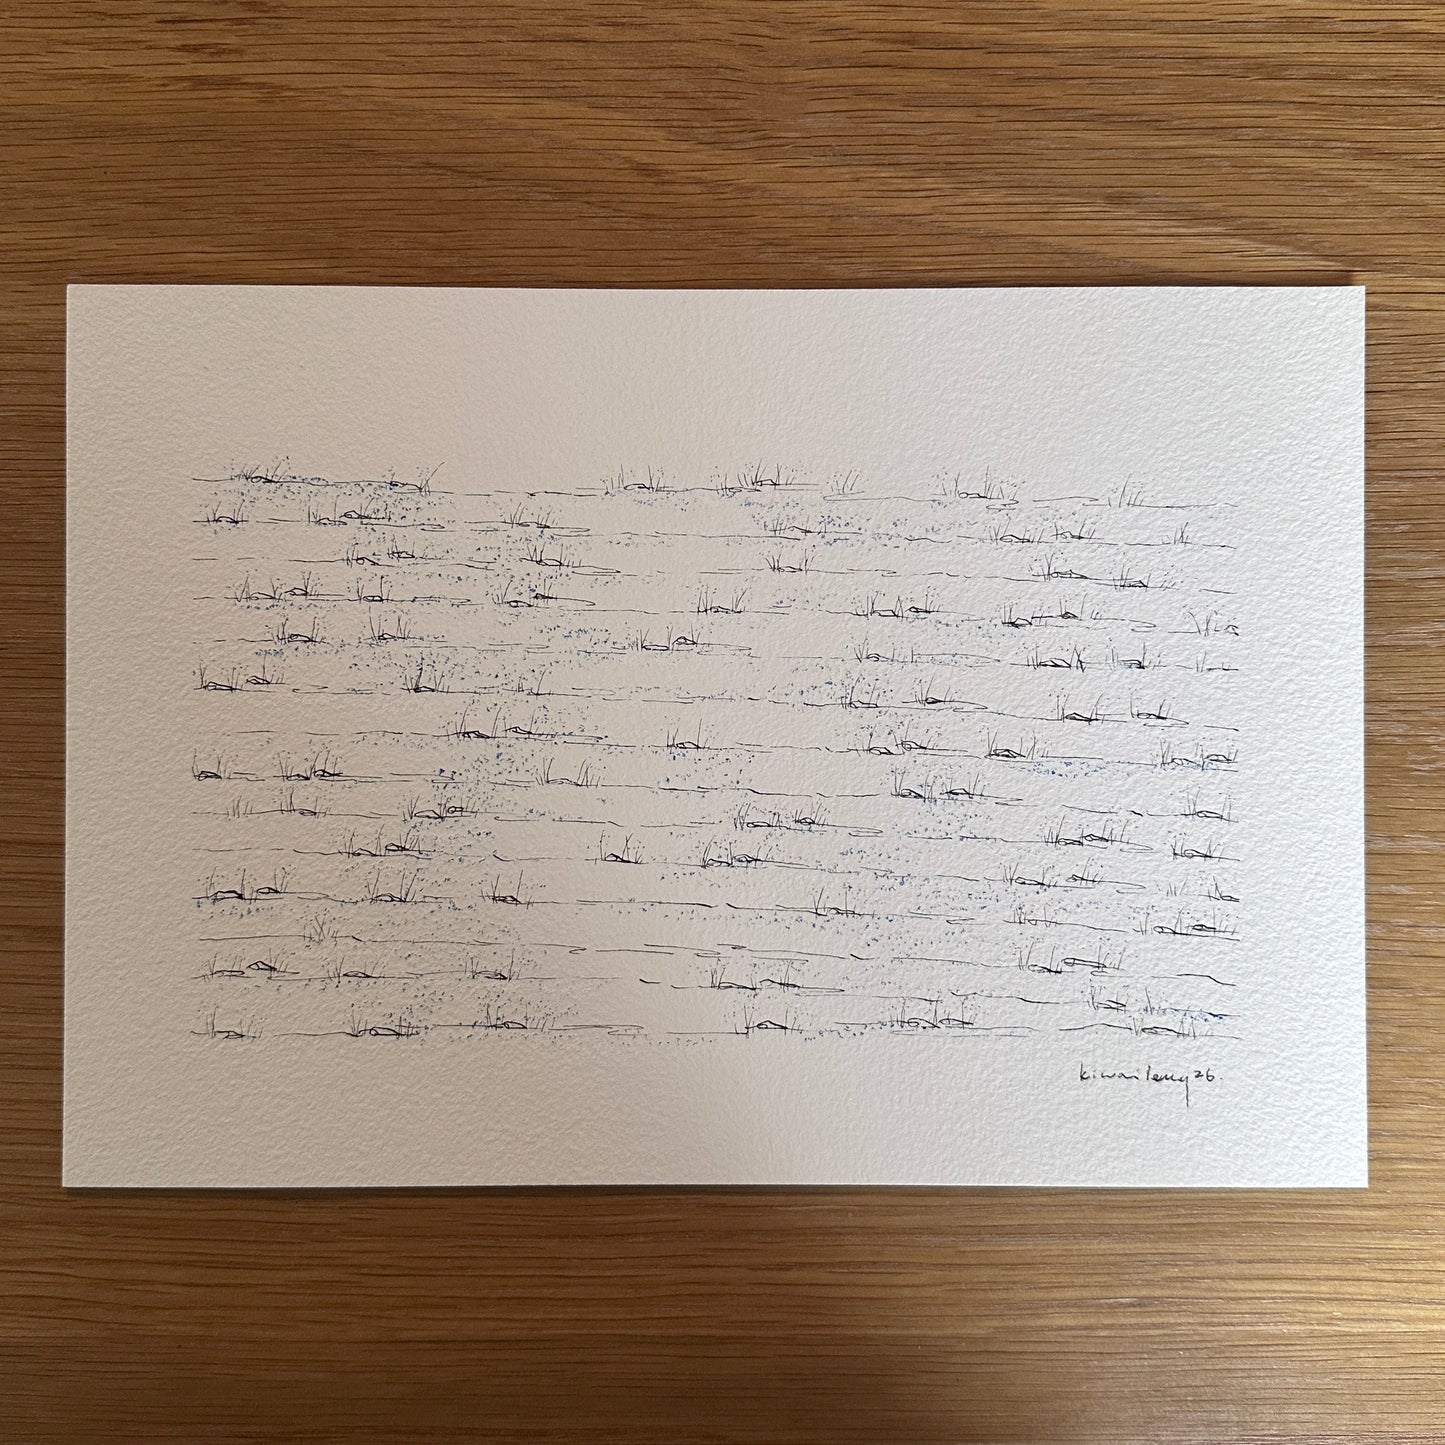 kiwai leung 26.